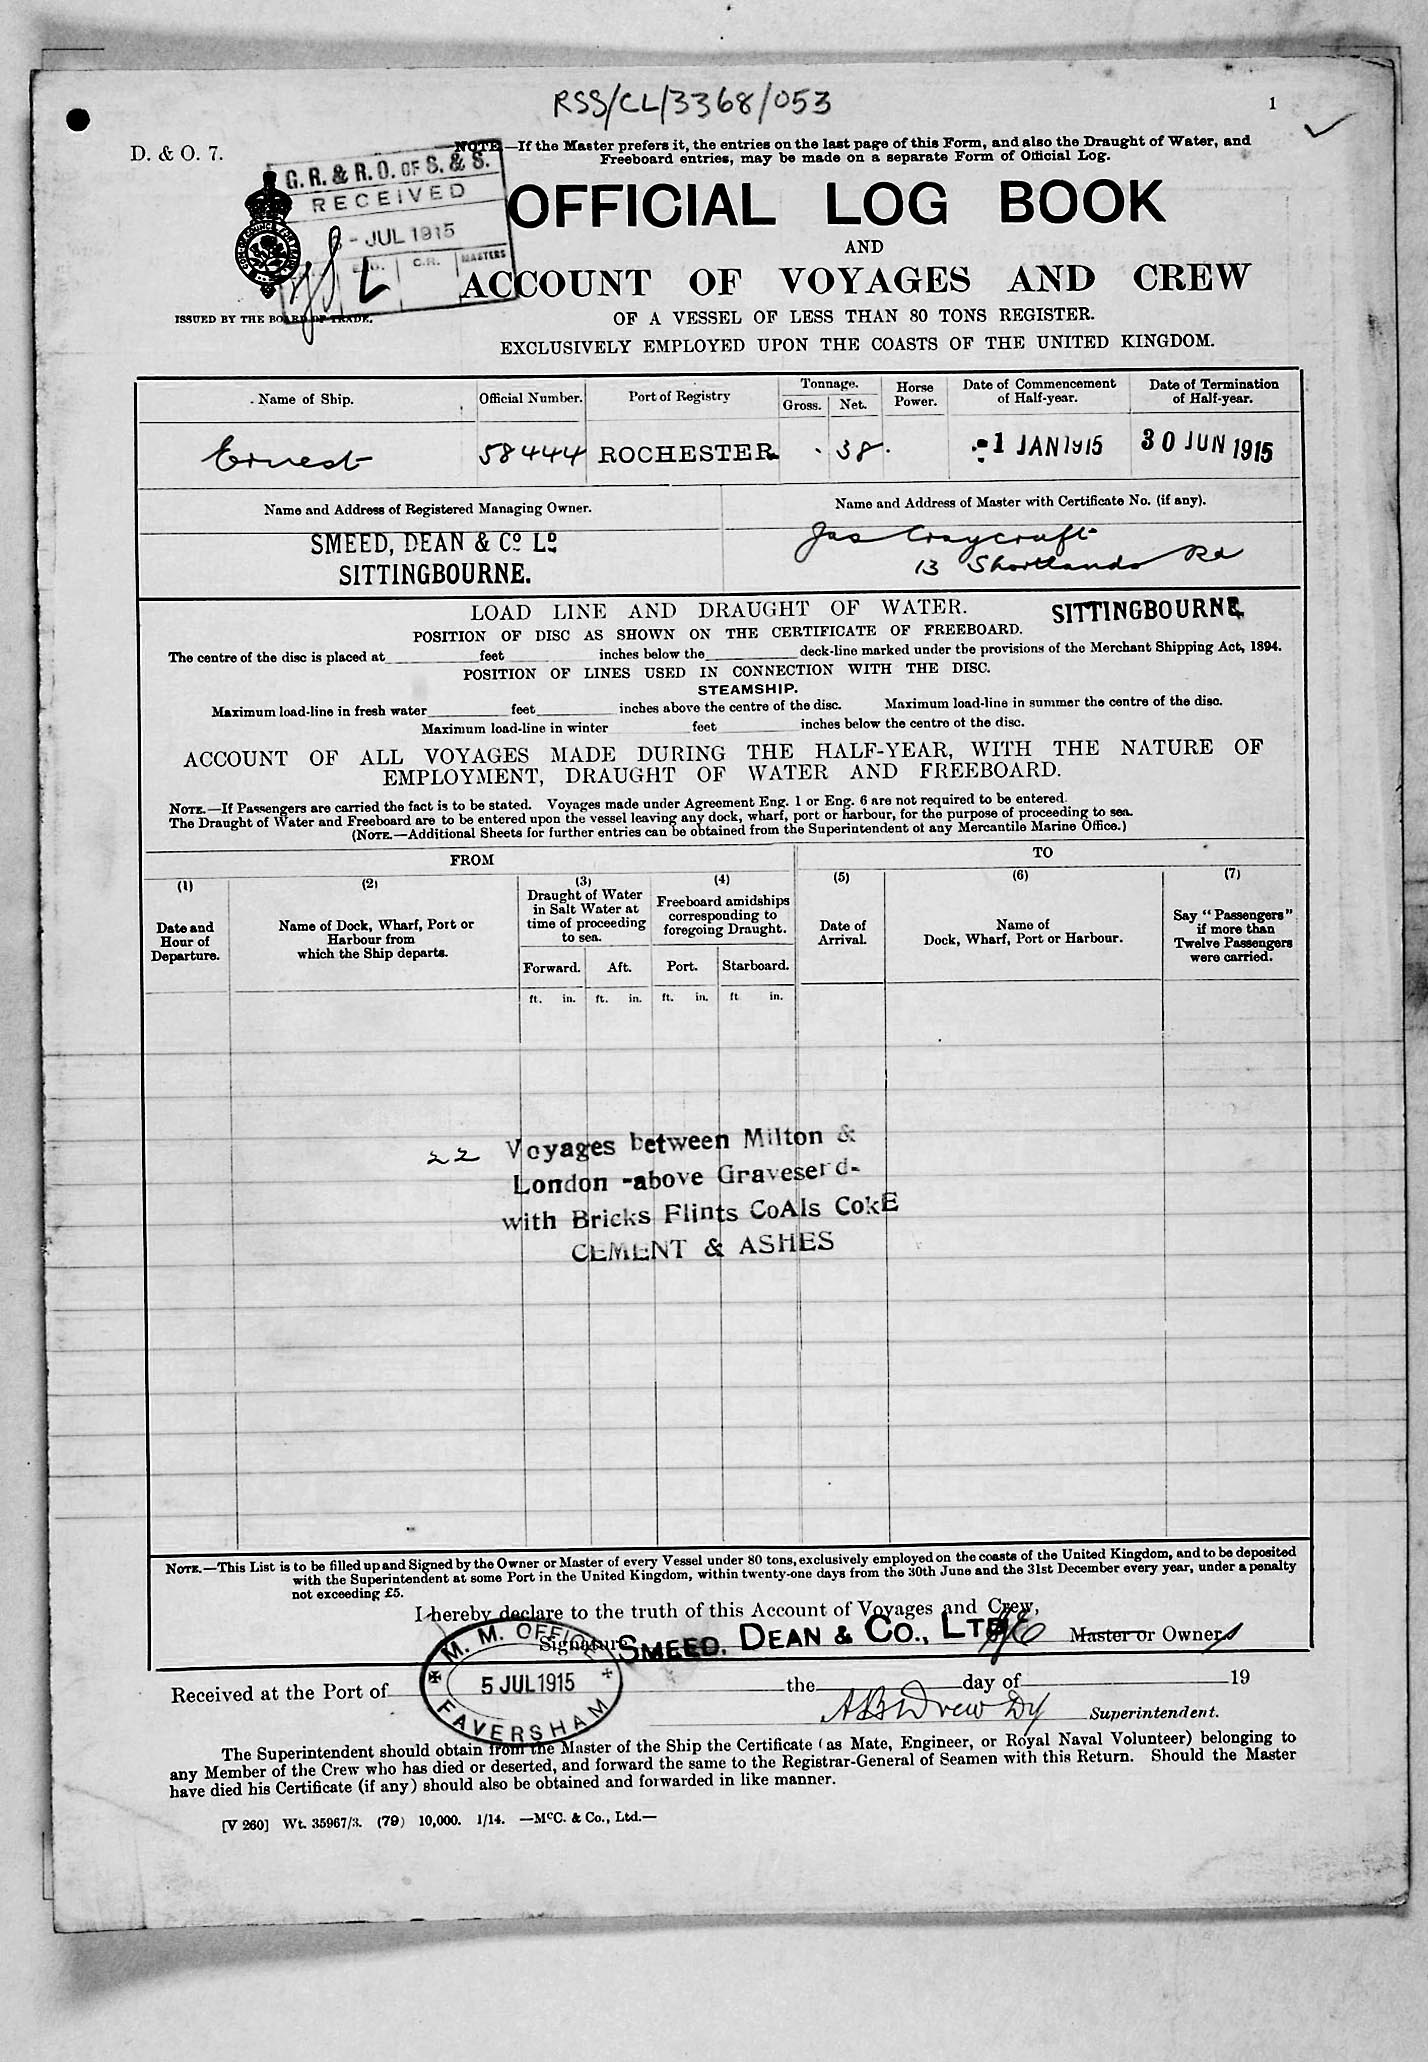 RSS/CL/3368/053
1
D. & O. 7.
NOTE.—If the Master prefers it, the entries on the last page of this Form, and also the Draught of Water, and
Freeboard entries, may be made on a separate Form of Official Log.
G. R. & R. O. OF S. & S.
RECEIVED
- JUL 1915
ENG. C.R. MASTERS
OFFICIAL LOG BOOK
AND
ACCOUNT OF VOYAGES AND CREW
ISSUED BY THE BOARD OF TRADE.
OF A VESSEL OF LESS THAN 80 TONS REGISTER.
EXCLUSIVELY EMPLOYED UPON THE COASTS OF THE UNITED KINGDOM.
Name of Ship. Official Number. Port of Registry Tonnage. Gross. Net. Horse Power. Date of Commencement of Half-year. Date of Termination of Half-year.
Ernest 58444 ROCHESTER 38 1 JAN 1915 30 JUN 1915
Name and Address of Registered Managing Owner. Name and Address of Master with Certificate No. (if any).
SMEED, DEAN & Co Ld Jas Craycraft
SITTINGBOURNE. 13 Shortlands Rd
SITTINGBOURNE.
LOAD LINE AND DRAUGHT OF WATER.
POSITION OF DISC AS SHOWN ON THE CERTIFICATE OF FREEBOARD.
The centre of the disc is placed at feet inches below the deck-line marked under the provisions of the Merchant Shipping Act, 1894.
POSITION OF LINES USED IN CONNECTION WITH THE DISC.
STEAMSHIP.
Maximum load-line in fresh water feet inches above the centre of the disc. Maximum load-line in summer the centre of the disc.
Maximum load-line in winter feet inches below the centre of the disc.
ACCOUNT OF ALL VOYAGES MADE DURING THE HALF-YEAR, WITH THE NATURE OF
EMPLOYMENT, DRAUGHT OF WATER AND FREEBOARD.
NOTE.—If Passengers are carried the fact is to be stated. Voyages made under Agreement Eng. 1 or Eng. 6 are not required to be entered.
The Draught of Water and Freeboard are to be entered upon the vessel leaving any dock, wharf, port or harbour, for the purpose of proceeding to sea.
(NOTE.—Additional Sheets for further entries can be obtained from the Superintendent of any Mercantile Marine Office.)
FROM TO
(1) (2) (3) (4) (5) (6) (7)
Date and Hour of Departure.
Name of Dock, Wharf, Port or Harbour from which the Ship departs.
Draught of Water in Salt Water at time of proceeding to sea.
Freeboard amidships corresponding to foregoing Draught.
Date of Arrival.
Name of Dock, Wharf, Port or Harbour.
Say "Passengers" if more than Twelve Passengers were carried.
Forward. Aft. Port. Starboard.
ft. in. ft. in. ft. in. ft in.
22 Voyages between Milton &
London -above Gravesend-
with Bricks Flints CoAls CokE
CEMENT & ASHES
NOTE.—This List is to be filled up and Signed by the Owner or Master of every Vessel under 80 tons, exclusively employed on the coasts of the United Kingdom, and to be deposited
with the Superintendent at some Port in the United Kingdom, within twenty-one days from the 30th June and the 31st December every year, under a penalty
not exceeding £5.
I hereby declare to the truth of this Account of Voyages and Crew,
Signature SMEED, DEAN & CO., LTD Master or Owner
M. M. OFFICE
5 JUL 1915
FAVERSHAM
Received at the Port of the day of 19
Superintendent.
The Superintendent should obtain from the Master of the Ship the Certificate (as Mate, Engineer, or Royal Naval Volunteer) belonging to
any Member of the Crew who has died or deserted, and forward the same to the Registrar-General of Seamen with this Return. Should the Master
have died his Certificate (if any) should also be obtained and forwarded in like manner.
[V 260] Wt. 35967/3. (79) 10,000. 1/14. —McC. & Co., Ltd.—